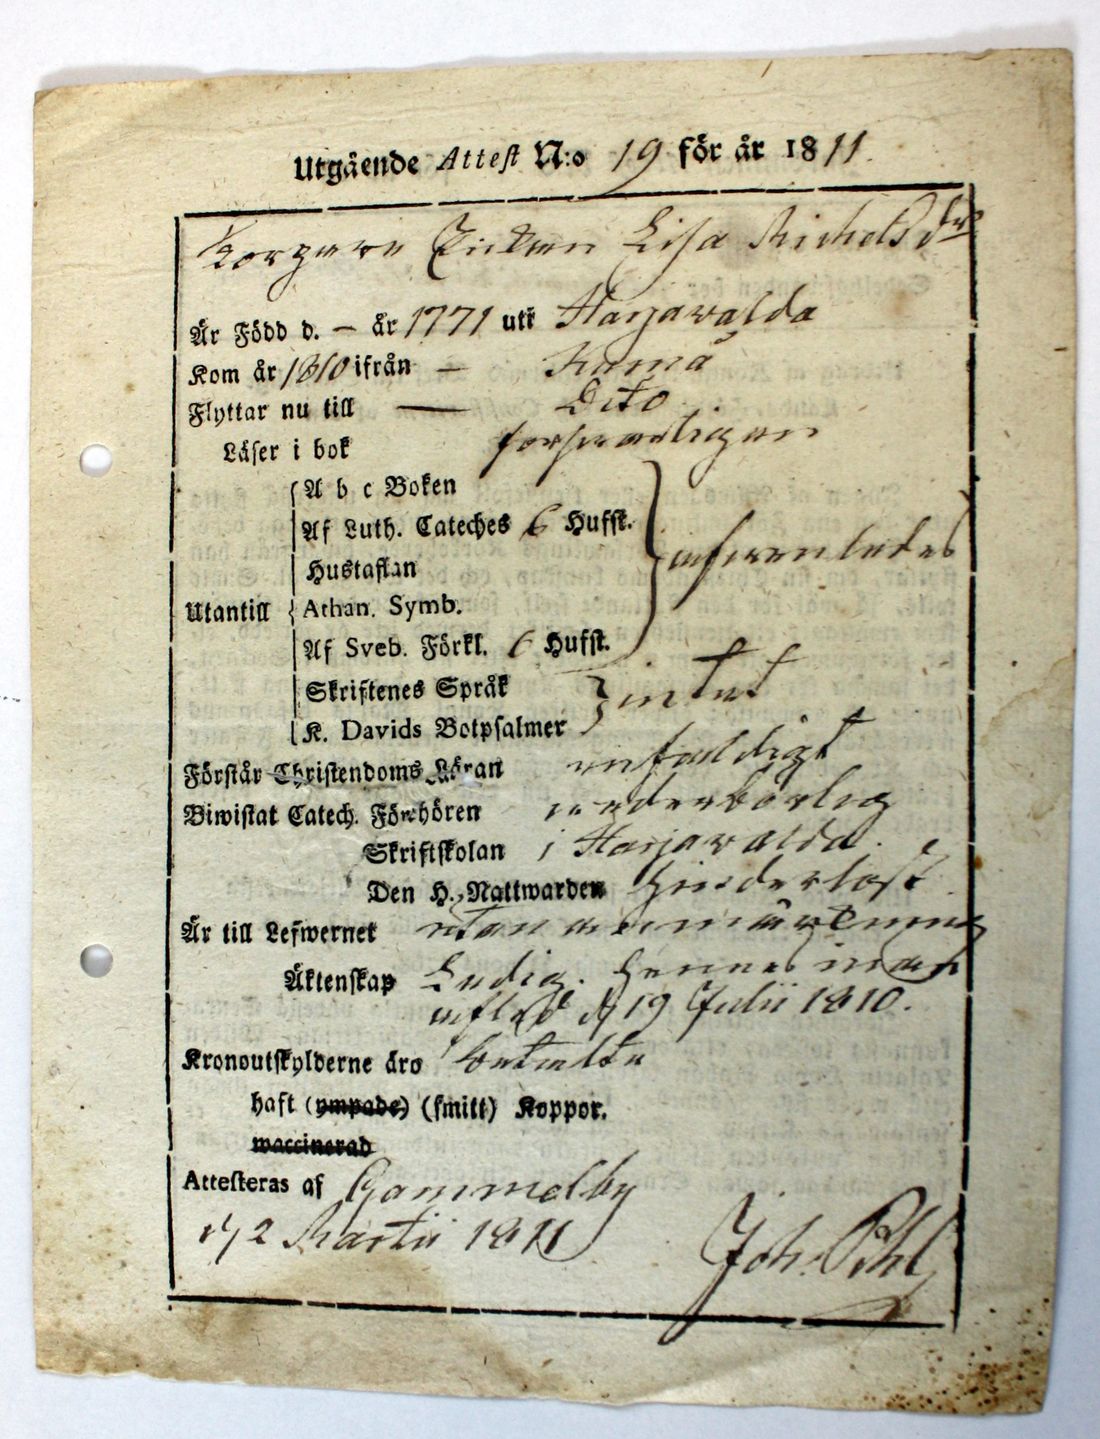 Utgående Attest N:o 19 för år 1811.
Torpare Enkan Lisa Michels dr
Är Född d. — år 1771 uti Harjawalda
Kom år 1810 ifrån — Kumå
Flyttar nu till — Dito
Läser i bok försvarligen
A b c Boken
Af Luth. Cateches 6 Hufst.
Hustaflan
Utantill Athan. Symb. aferenledes
Af Sveb. Förkl. 6 Hufst.
Skriftenes Språk
K. Davids Botpsalmer intet
Förstår Christendoms Läran enfaldigt
Biwistat Catech. Förehören wederbörlig
Skriftskolan i Harjawalda.
Den H. Nattwarden hinderlöst
Är till Lefwernet utan anmärkning
Äktenskap Ledig. Hennes man
afled d 19 Julii 1810.
Kronoutskylderne äro betalte
haft (ympade) (smitt) Koppor.
waccinerad
Attesteras af Gammelby
d 2 Martii 1811 Joh. Pihl